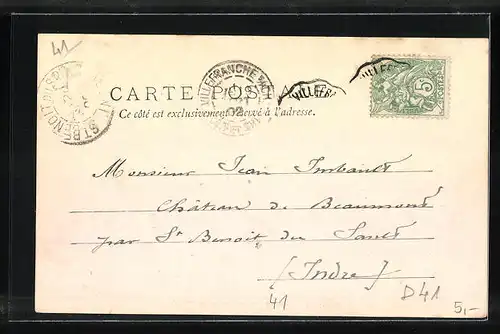 41
ST BENOIT DU S
VILLEFRANCHE
02
VILLEF
VILLEF
5
CARTE POSTALE
Ce côté est exclusivement réservé à l'adresse.
Monsieur Jean Imbault
Château de Beaumont
par St Benoit du Sault
(Indre)
41
D41
5,-